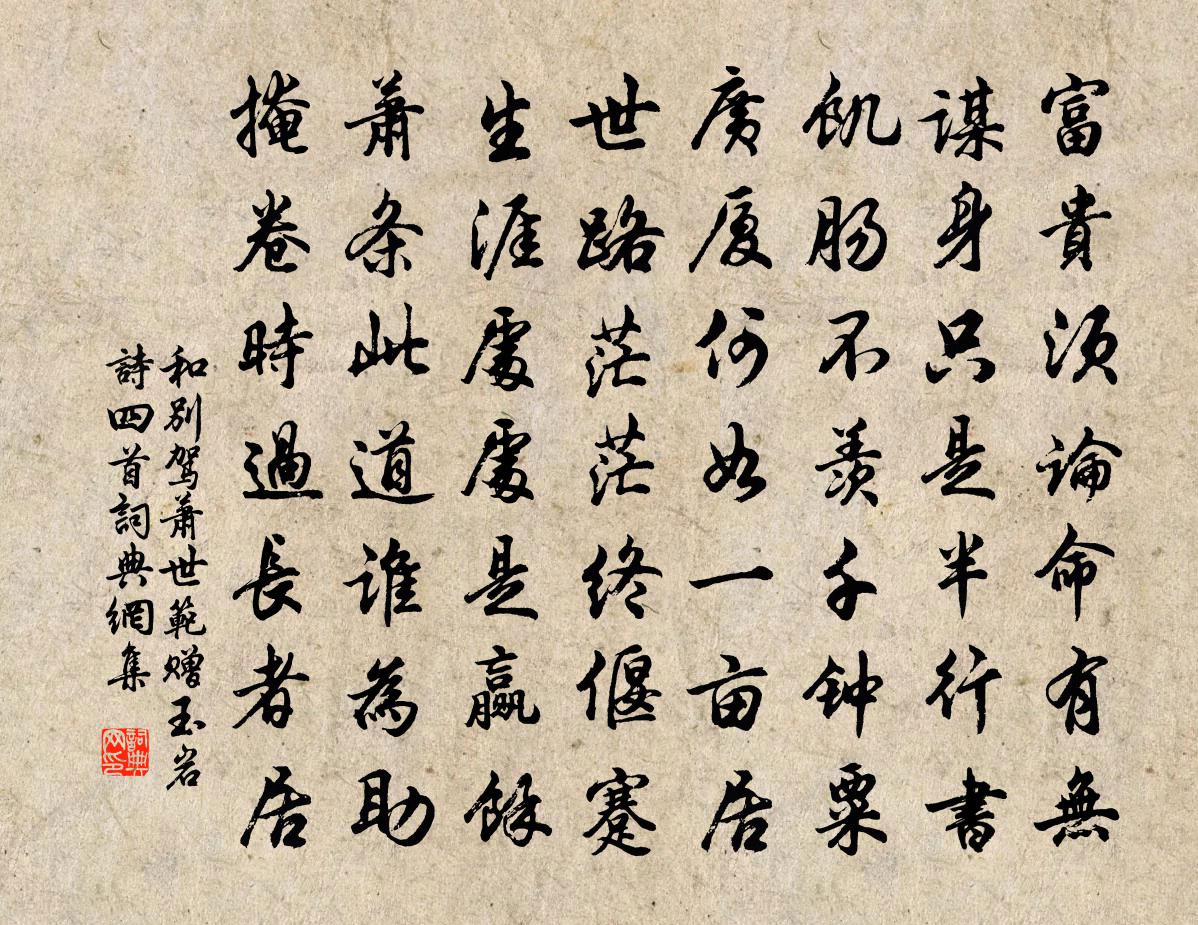 富貴須論命有無
謀身只是半行書
飢肠不羨千钟粟
廣厦何如一亩居
世路茫茫終偃蹇
生涯處處是贏餘
蕭条此道誰為助
掩卷時過長者居
和別駕蕭世範赠玉岩
詩四首詞典網集
詞典
网印